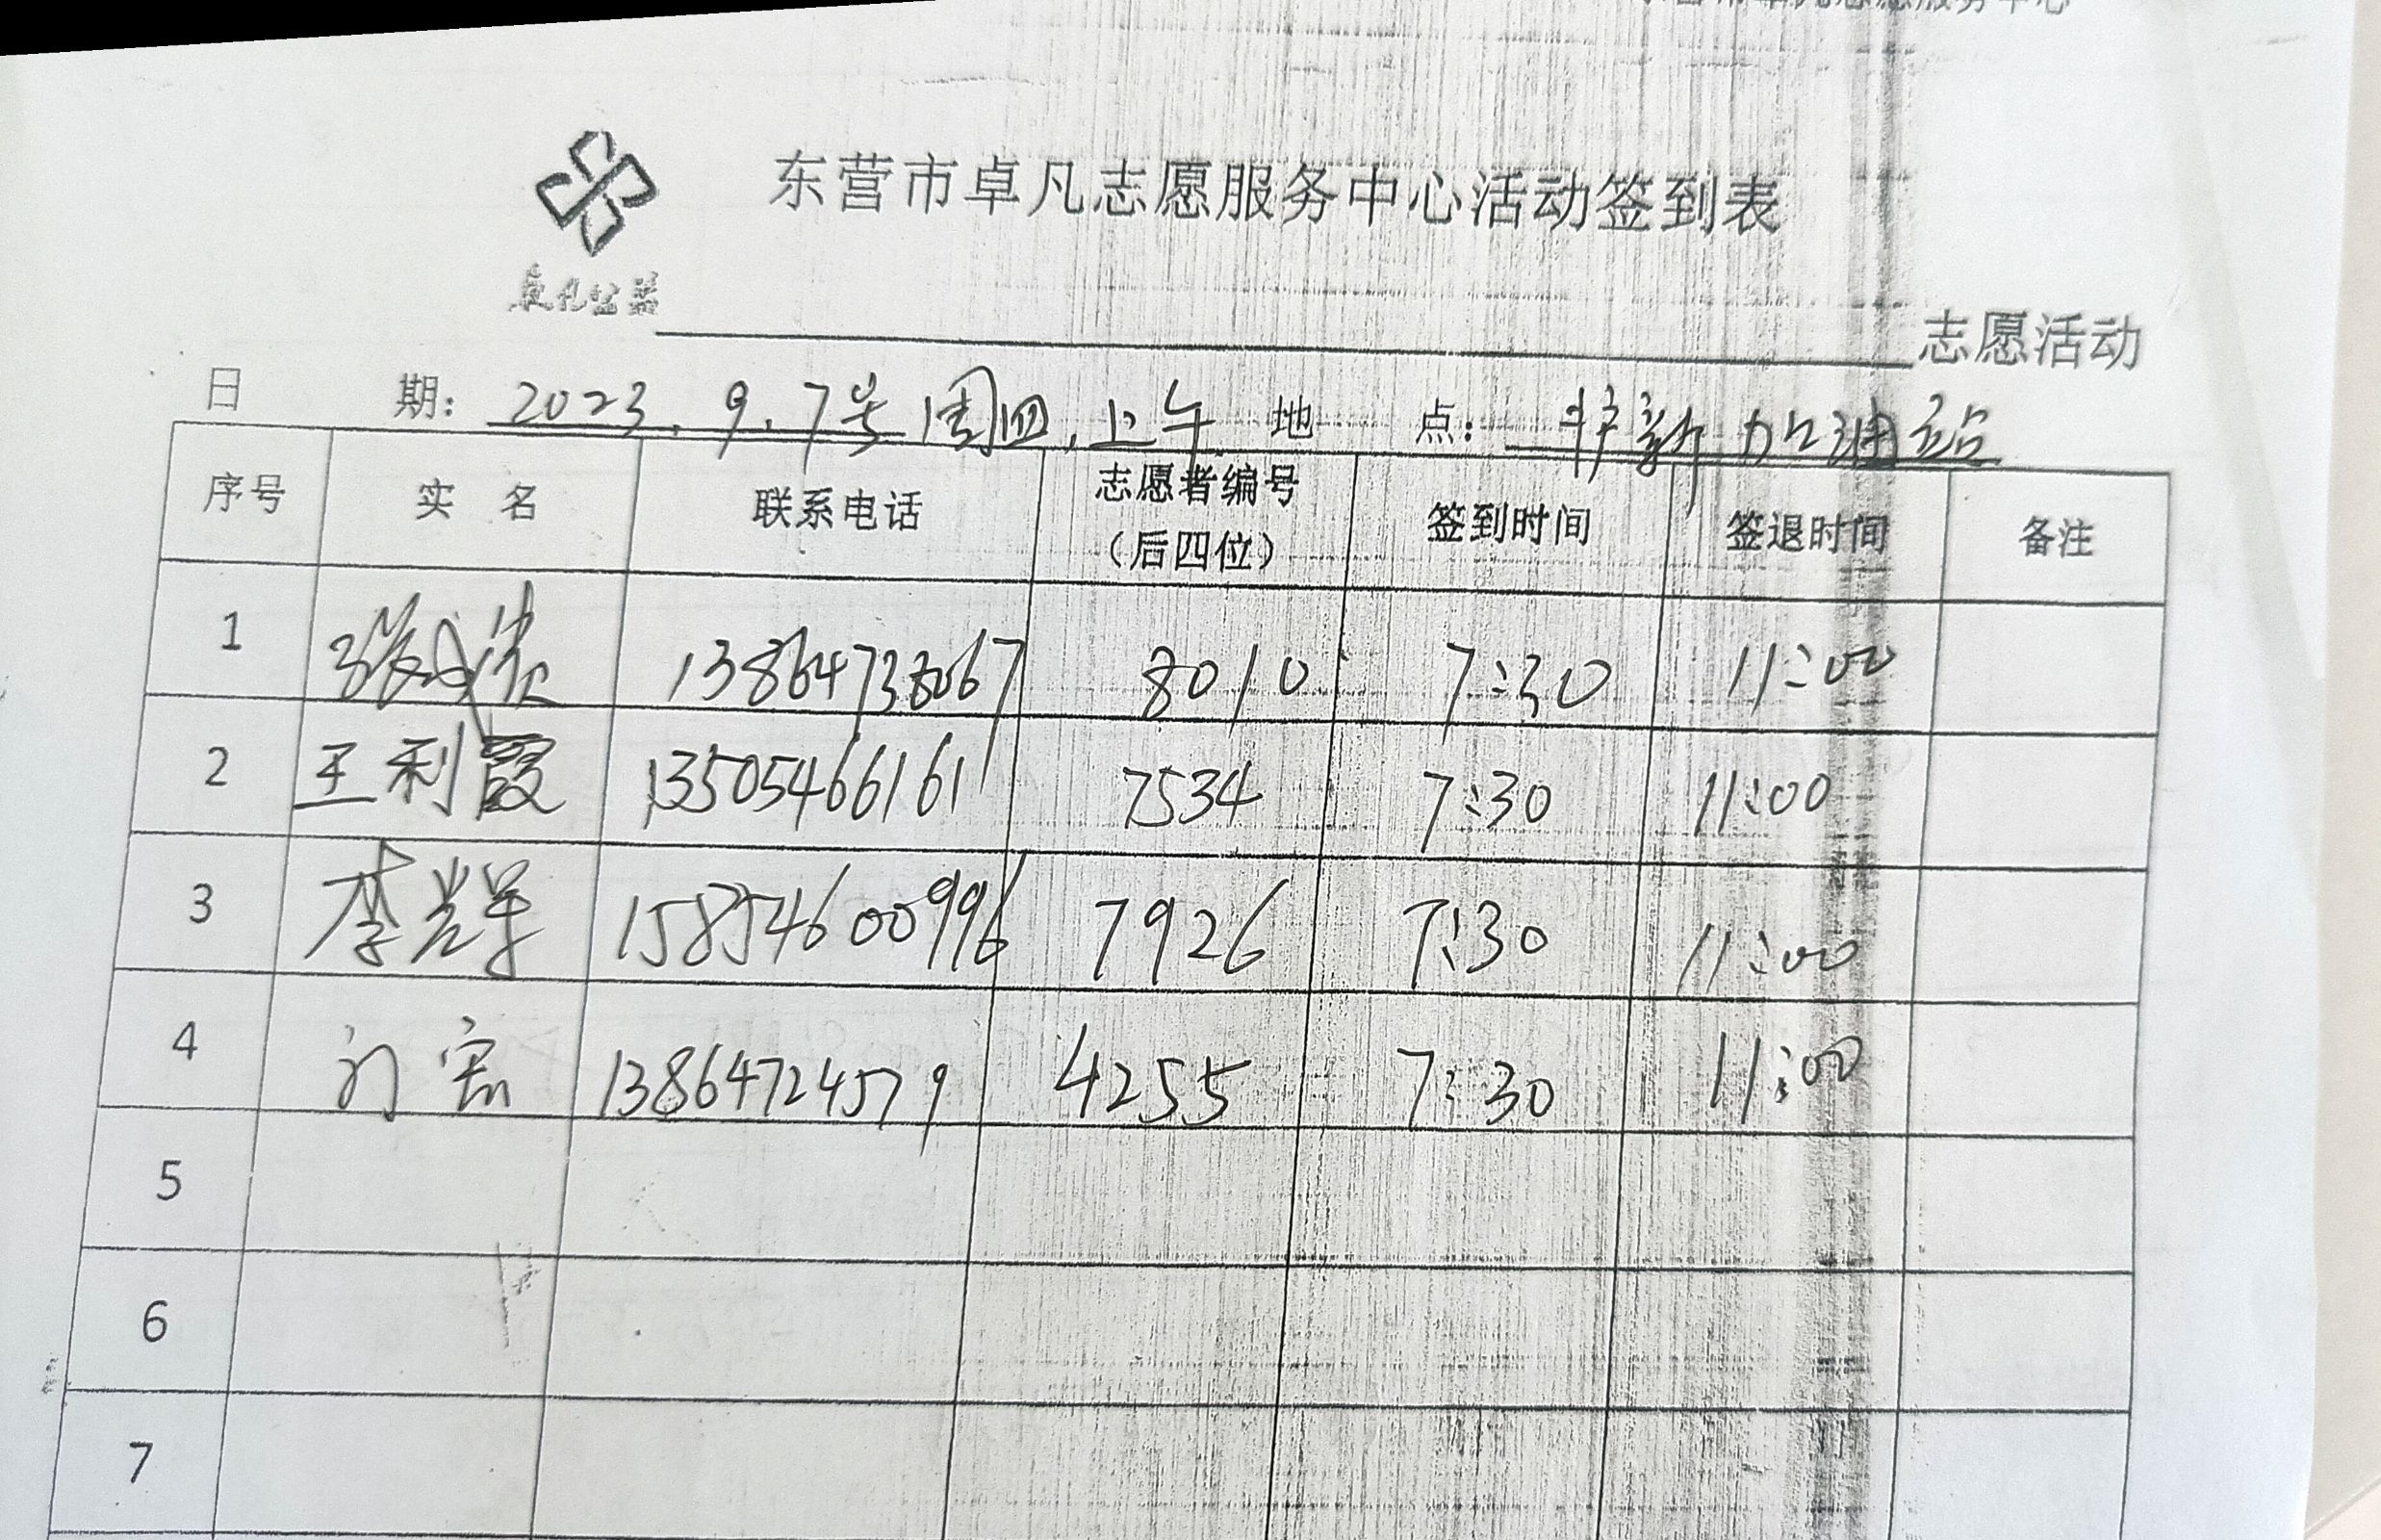 东营市卓凡志愿服务中心
东营市卓凡志愿服务中心活动签到表
卓凡公益
志愿活动
日 期: 2023.9.7号周四,上午 地 点: 新加油站
序号 实 名 联系电话 志愿者编号（后四位） 签到时间 签退时间 备注
1 张 8010 7:30 11:00
2 王利霞 13505466161 7534 7:30 11:00
3 李光军 15854600996 7926 7:30 11:00
4 13864724579 4255 7:30 11:00
5
6
7